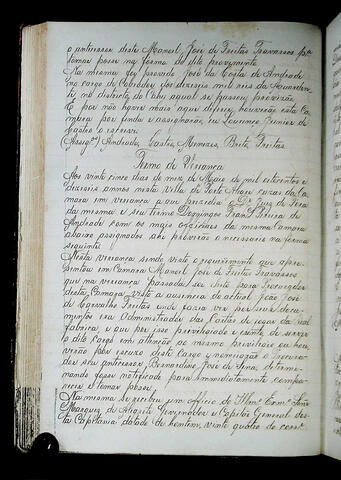 o antecessor deste Manoel José de Freitas Travassos p.a
tomar posse na forma do dito provimento
Na mesma foi provido José da Costa de Andrade
no cargo de Cobrador dos dezeseis mil reis da Aguarden
te, no districto de Cahy, aqual se passou provizão
E por não haver mais que diferir, houverão esta Ca
mara por finda e assignarão, eu Lourenço Junior de
Castro a escrevi
Assig.os) Andrade, Castro, Menezes, Brito, Freitas
Termo de Vereança
Aos vinte cinco dias do mez de Maio de mil oitocentos e
dezeseis annos nesta Villa de Porto Alegre cazas da Ca
mara em vereança que prezedio o Dr. Juiz de Fora
da mesma e seu termo Domingos Fran.co Pereira de
Andrade com os mais officiaes da mesma Camara
abaixo assignados ahi proverão o necessario na forma
seguinte
Nesta vereança sendo visto o requerimento que apre-
sentou em Camara Manoel José de Freitas Travassos
que na vereança passada foi eleito para Procurador
desta Camara, visto a ausencia do actual João José
de Carvalho Freitas onde fazia ver por seus docu-
mentos ser Administrador das Cartas de jogar da Real
fabrica, e que por isso previlegiado e izento de servir
o dito cargo em attenção ao mesmo previlegio, hou
verão por escuzo deste Cargo e nomearão a Procura-
dor seu antecessor, Bernardino José de Sena, determi-
nando fosse notificado para immediatamente compare-
cer e tomar posse
Na mesma se recebeu um Officio do Illm.o Exm.o Snr.
Marquez de Alegrete Governador e Capitão General des-
ta Capitania datado de hontem, vinte quatro do corr.e